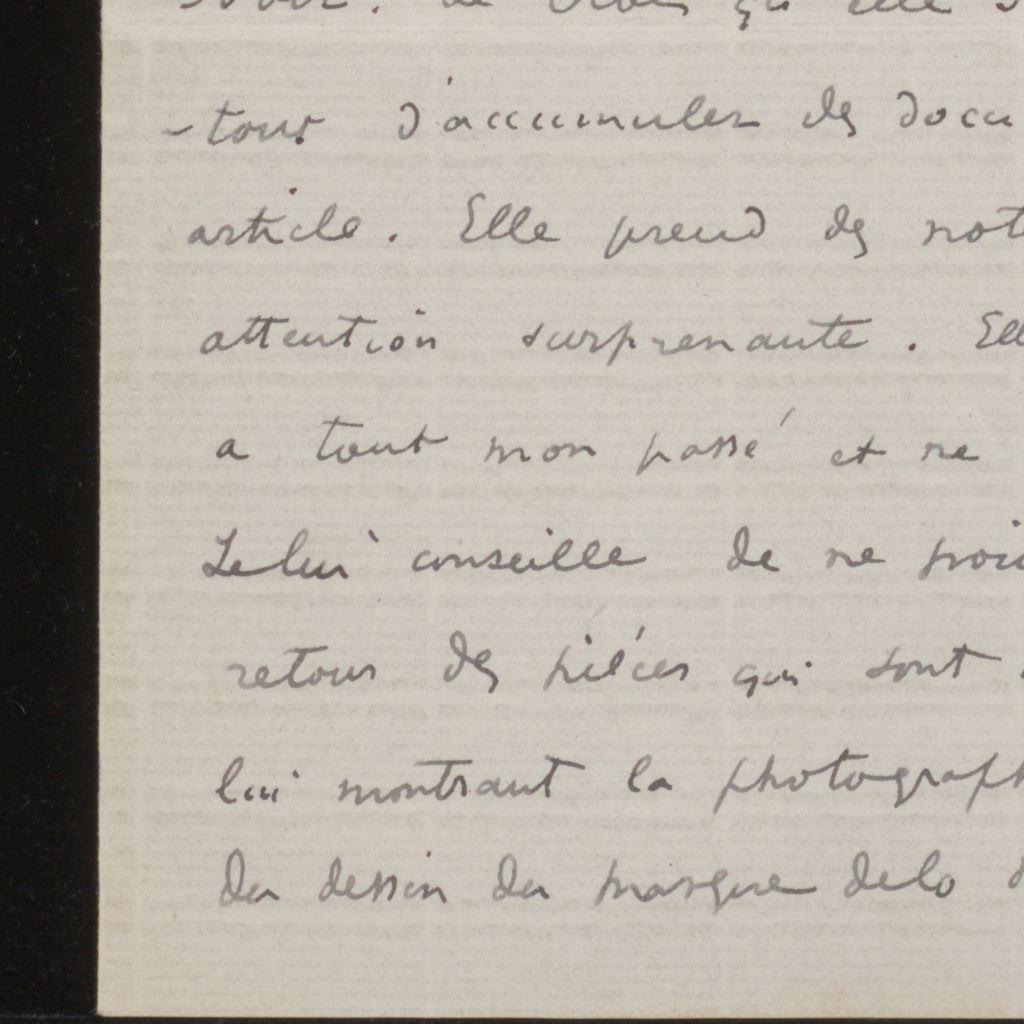 qu'elle
-tour d'accumuler des docu
article. Elle prend des not
attention surprenante. Ell
a tout mon passé et ne
Je lui conseille de ne poi
retour des pièces qui sont
lui montrant la photograph
du dessin du masque de la